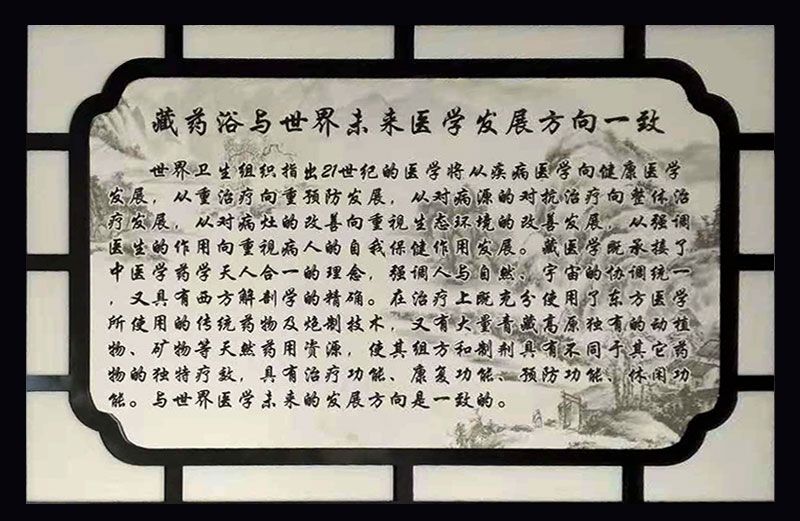 藏药浴与世界未来医学发展方向一致
世界卫生组织指出21世纪的医学将从疾病医学向健康医学
发展，从重治疗向重预防发展，从对病源的对抗治疗向整体治
疗发展，从对病灶的改善向重视生态环境的改善发展，从强调
医生的作用向重视病人的自我保健作用发展。藏医学既承接了
中医学药学天人合一的理念，强调人与自然、宇宙的协调统一
，又具有西方解剖学的精确。在治疗上既充分使用了东方医学
所使用的传统药物及炮制技术，又有大量青藏高原独有的动植
物、矿物等天然药用资源，使其组方和制剂具有不同于其它药
物的独特疗效，具有治疗功能、康复功能、预防功能、休闲功
能。与世界医学未来的发展方向是一致的。